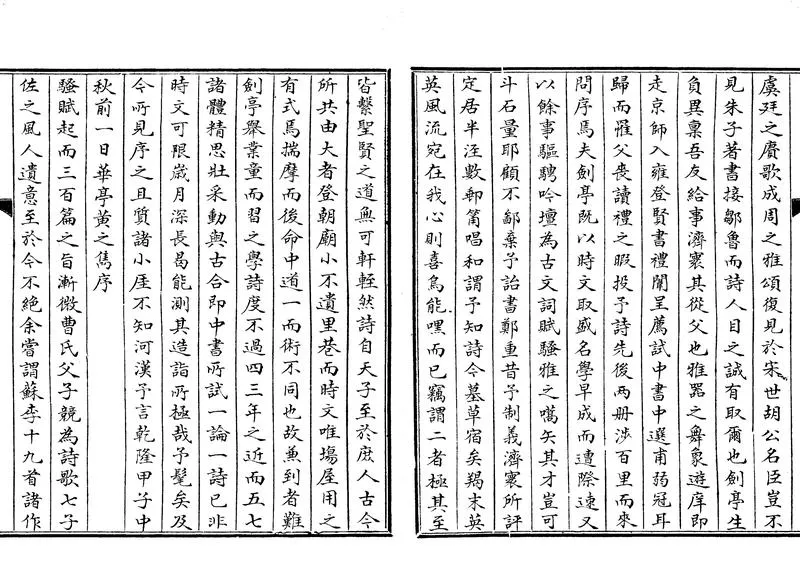 虞廷之賡歌成周之雅頌復見於宋世胡公名臣豈不
見朱子著書接鄒魯而詩人目之誠有取爾也劍亭生
負異稟吾友給事濟寰其從父也雅器之舞象遊庠即
走京師入雍登賢書禮闈呈薦試中書中選甫弱冠耳
歸而罹父喪讀禮之暇投予詩先後兩册涉百里而來
問序焉夫劍亭既以時文取盛名學早成而遭際速又
以餘事驅騁吟壇為古文詞賦騷雅之嚆矢其才豈可
斗石量耶顧不鄙棄予詒書鄭重昔予制義濟寰所評
定居半泖數郵筩唱和謂予知詩今墓草宿矣羯末英
英風流宛在我心則喜焉能嘿而已竊謂二者極其至
皆繫聖賢之道無可軒輊然詩自天子至於庶人古今
所共由大者登朝廟小不遺里巷而時文唯塲屋用之
有式焉揣摩而後命中道一而術不同也故兼到者難
劍亭舉業童而習之學詩度不過四三年之近而五七
諸體精思壯采動與古合即中書所試一論一詩已非
時文可限歲月深長曷能測其造詣所極哉予髦矣及
今所見序之且質諸小厓不知河漢予言乾隆甲子中
秋前一日華亭黃之雋序
騷賦起而三百篇之旨漸微曹氏父子競為詩歌七子
佐之風人遺意至於今不絕余嘗謂蘇李十九首諸作